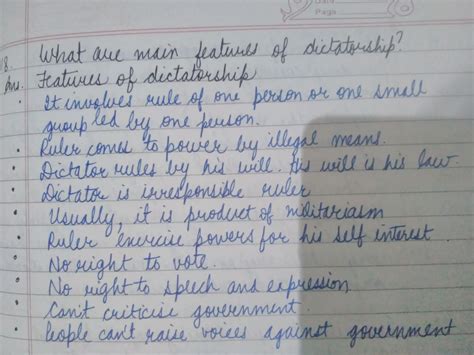 Page
18. What are main features of dictatorship?
Ans. Features of dictatorship
• It involves rule of one person or one small
group led by one person.
• Ruler comes to power by illegal means.
• Dictator rules by his will. His will is his law.
• Dictator is irresponsible ruler
• Usually, it is product of militariasm
• Ruler exercise powers for his self interest.
• No right to vote.
• No right to speech and expression.
• Can't criticise government.
• People can't raise voices against government